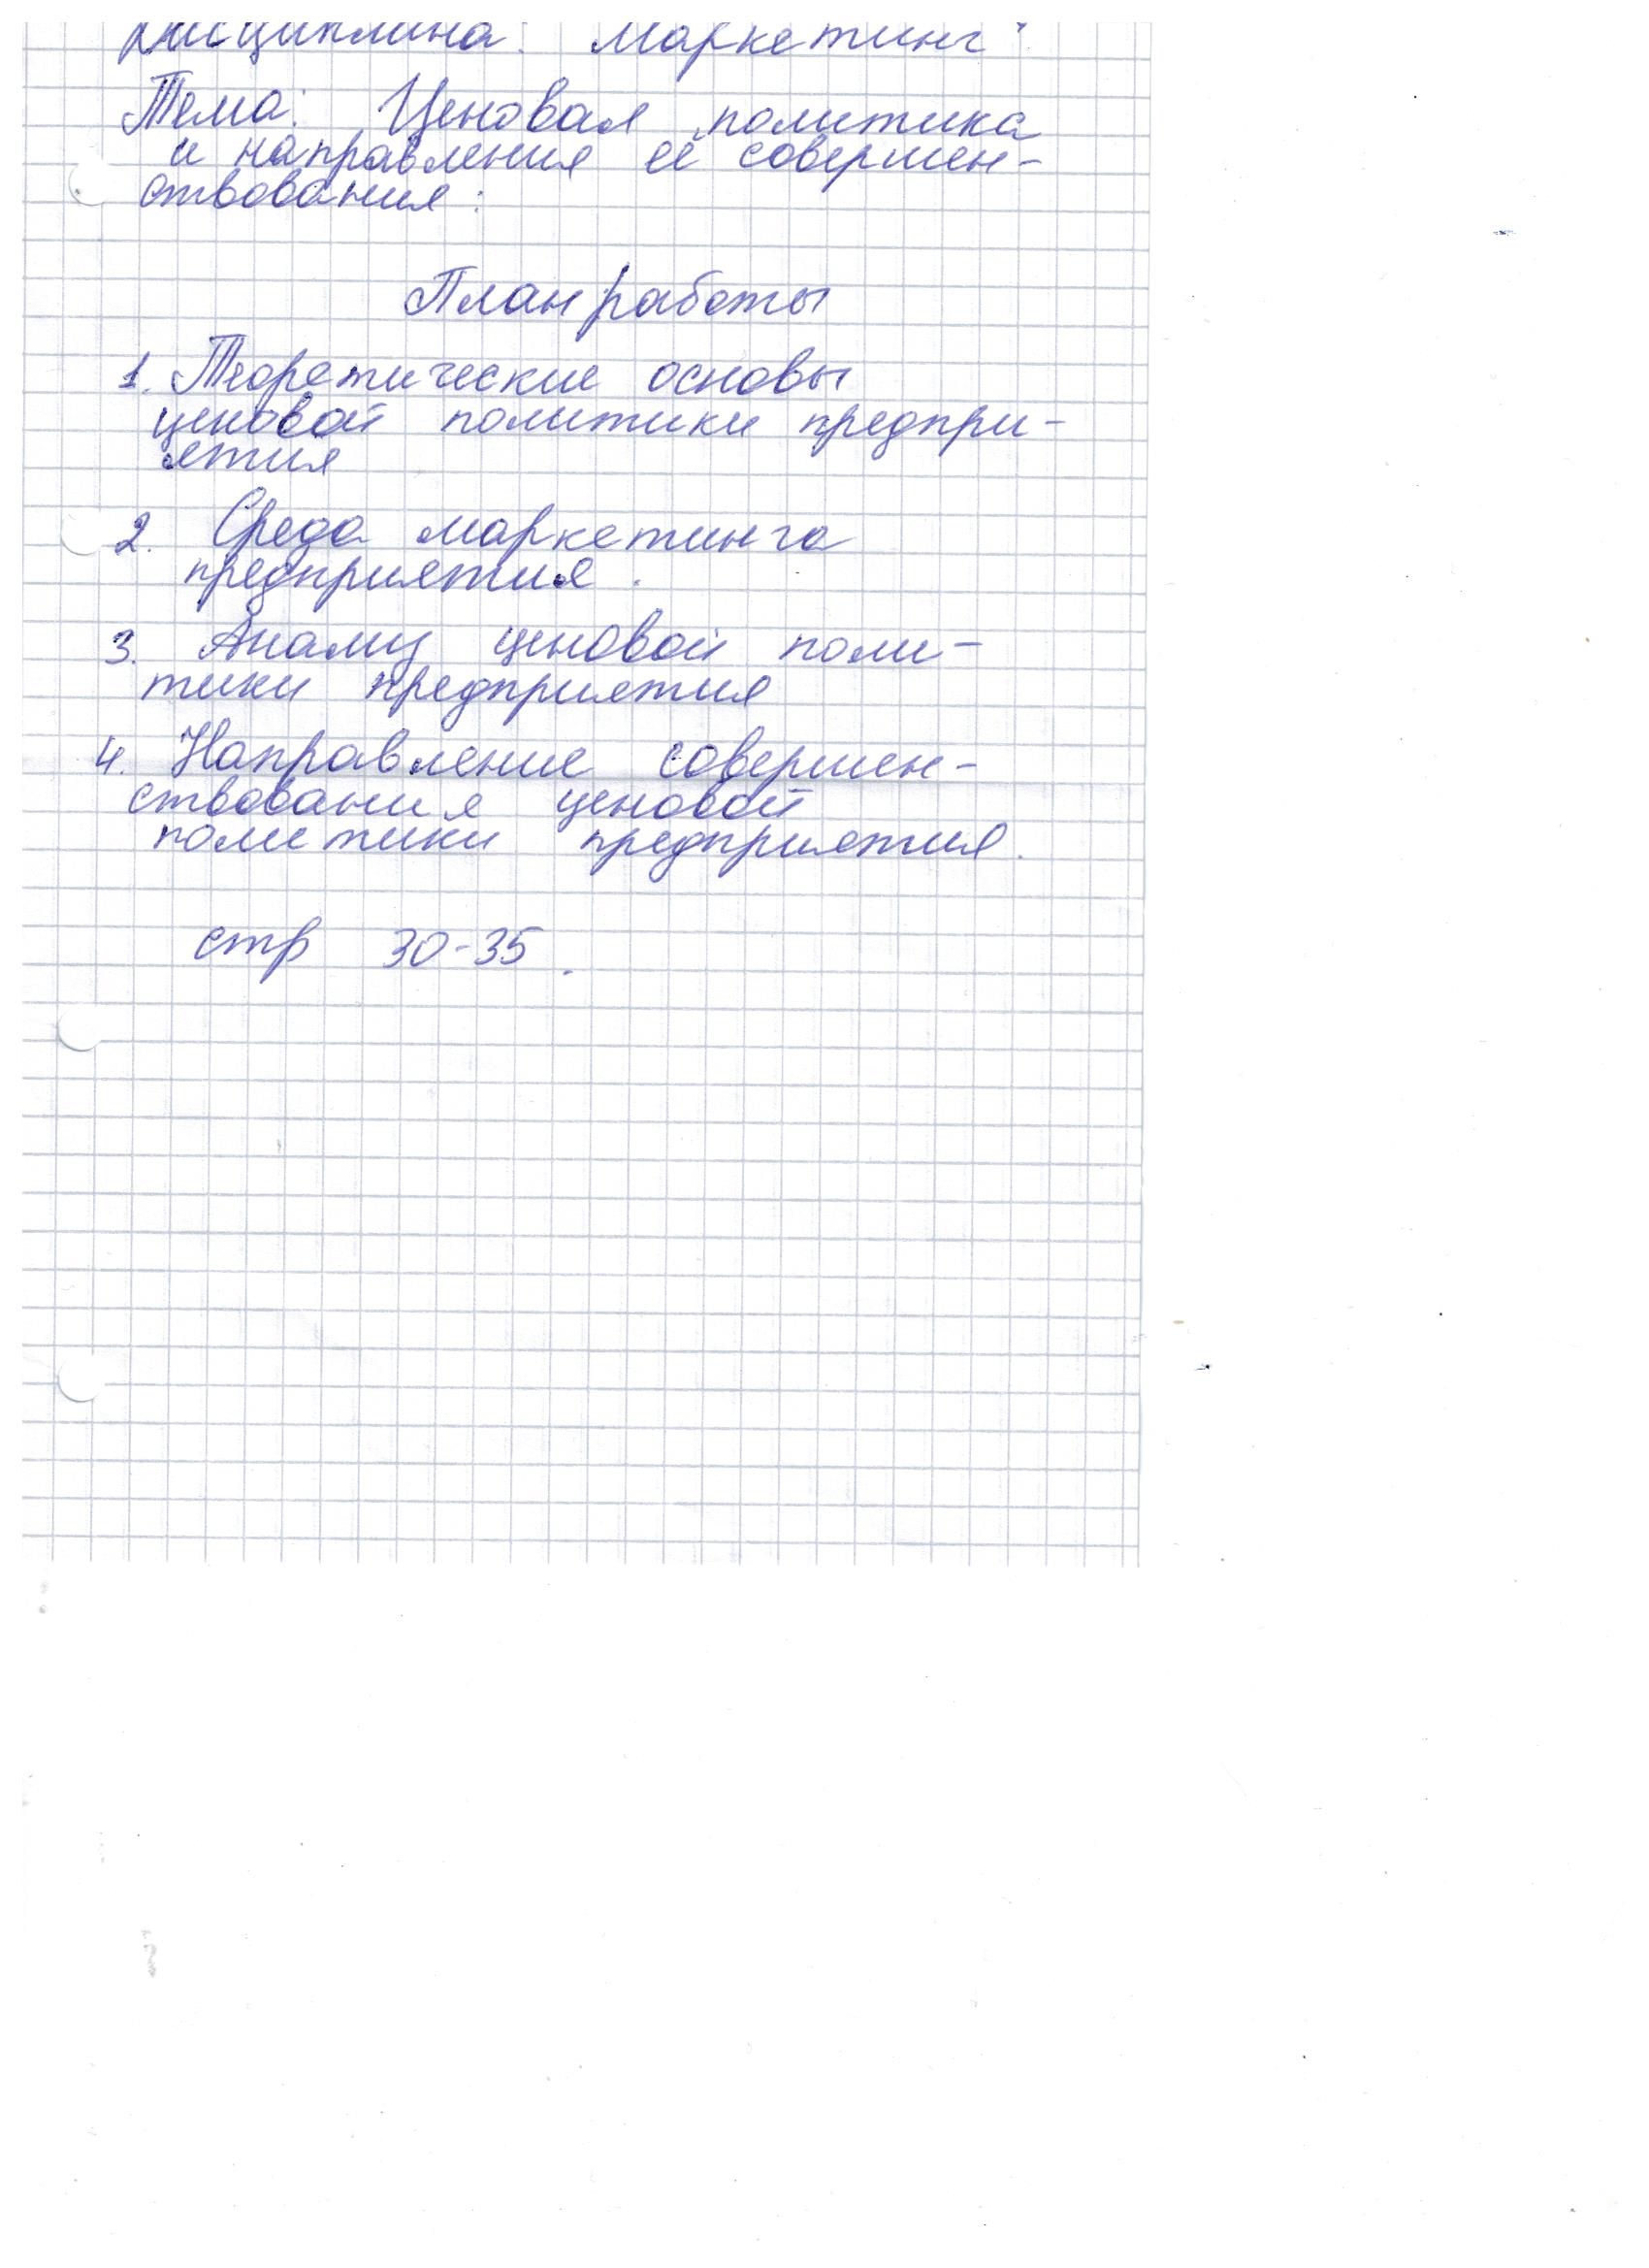 Дисциплина: Маркетинг.
Тема: Ценовая политика
и направления её совершен-
ствования:
План работы
1. Теоретические основы
ценовой политики предпри-
ятия
2. Среда маркетинга
предприятия.
3. Анализ ценовой поли-
тики предприятия
4. Направление совершен-
ствования ценовой
политики предприятия.
стр 30-35.